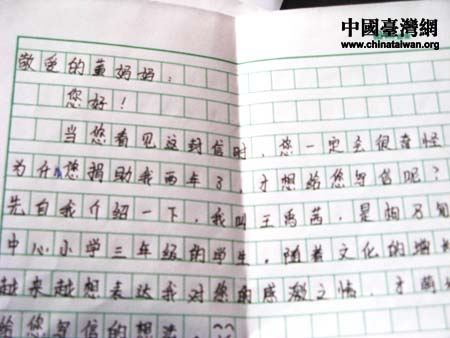 中國臺灣網
www.chinataiwan.org
敬爱的董妈妈：
您好！
当您看见这封信时，您一定会很奇怪
为什您捐助我两年了，才想给您写信呢？
先自我介绍一下，我叫王禹茜，是相乃甸
中心小学三年级的学生，随着文化的增
越来越想表达我对您的感激之情，才萌
给您写信的想法，